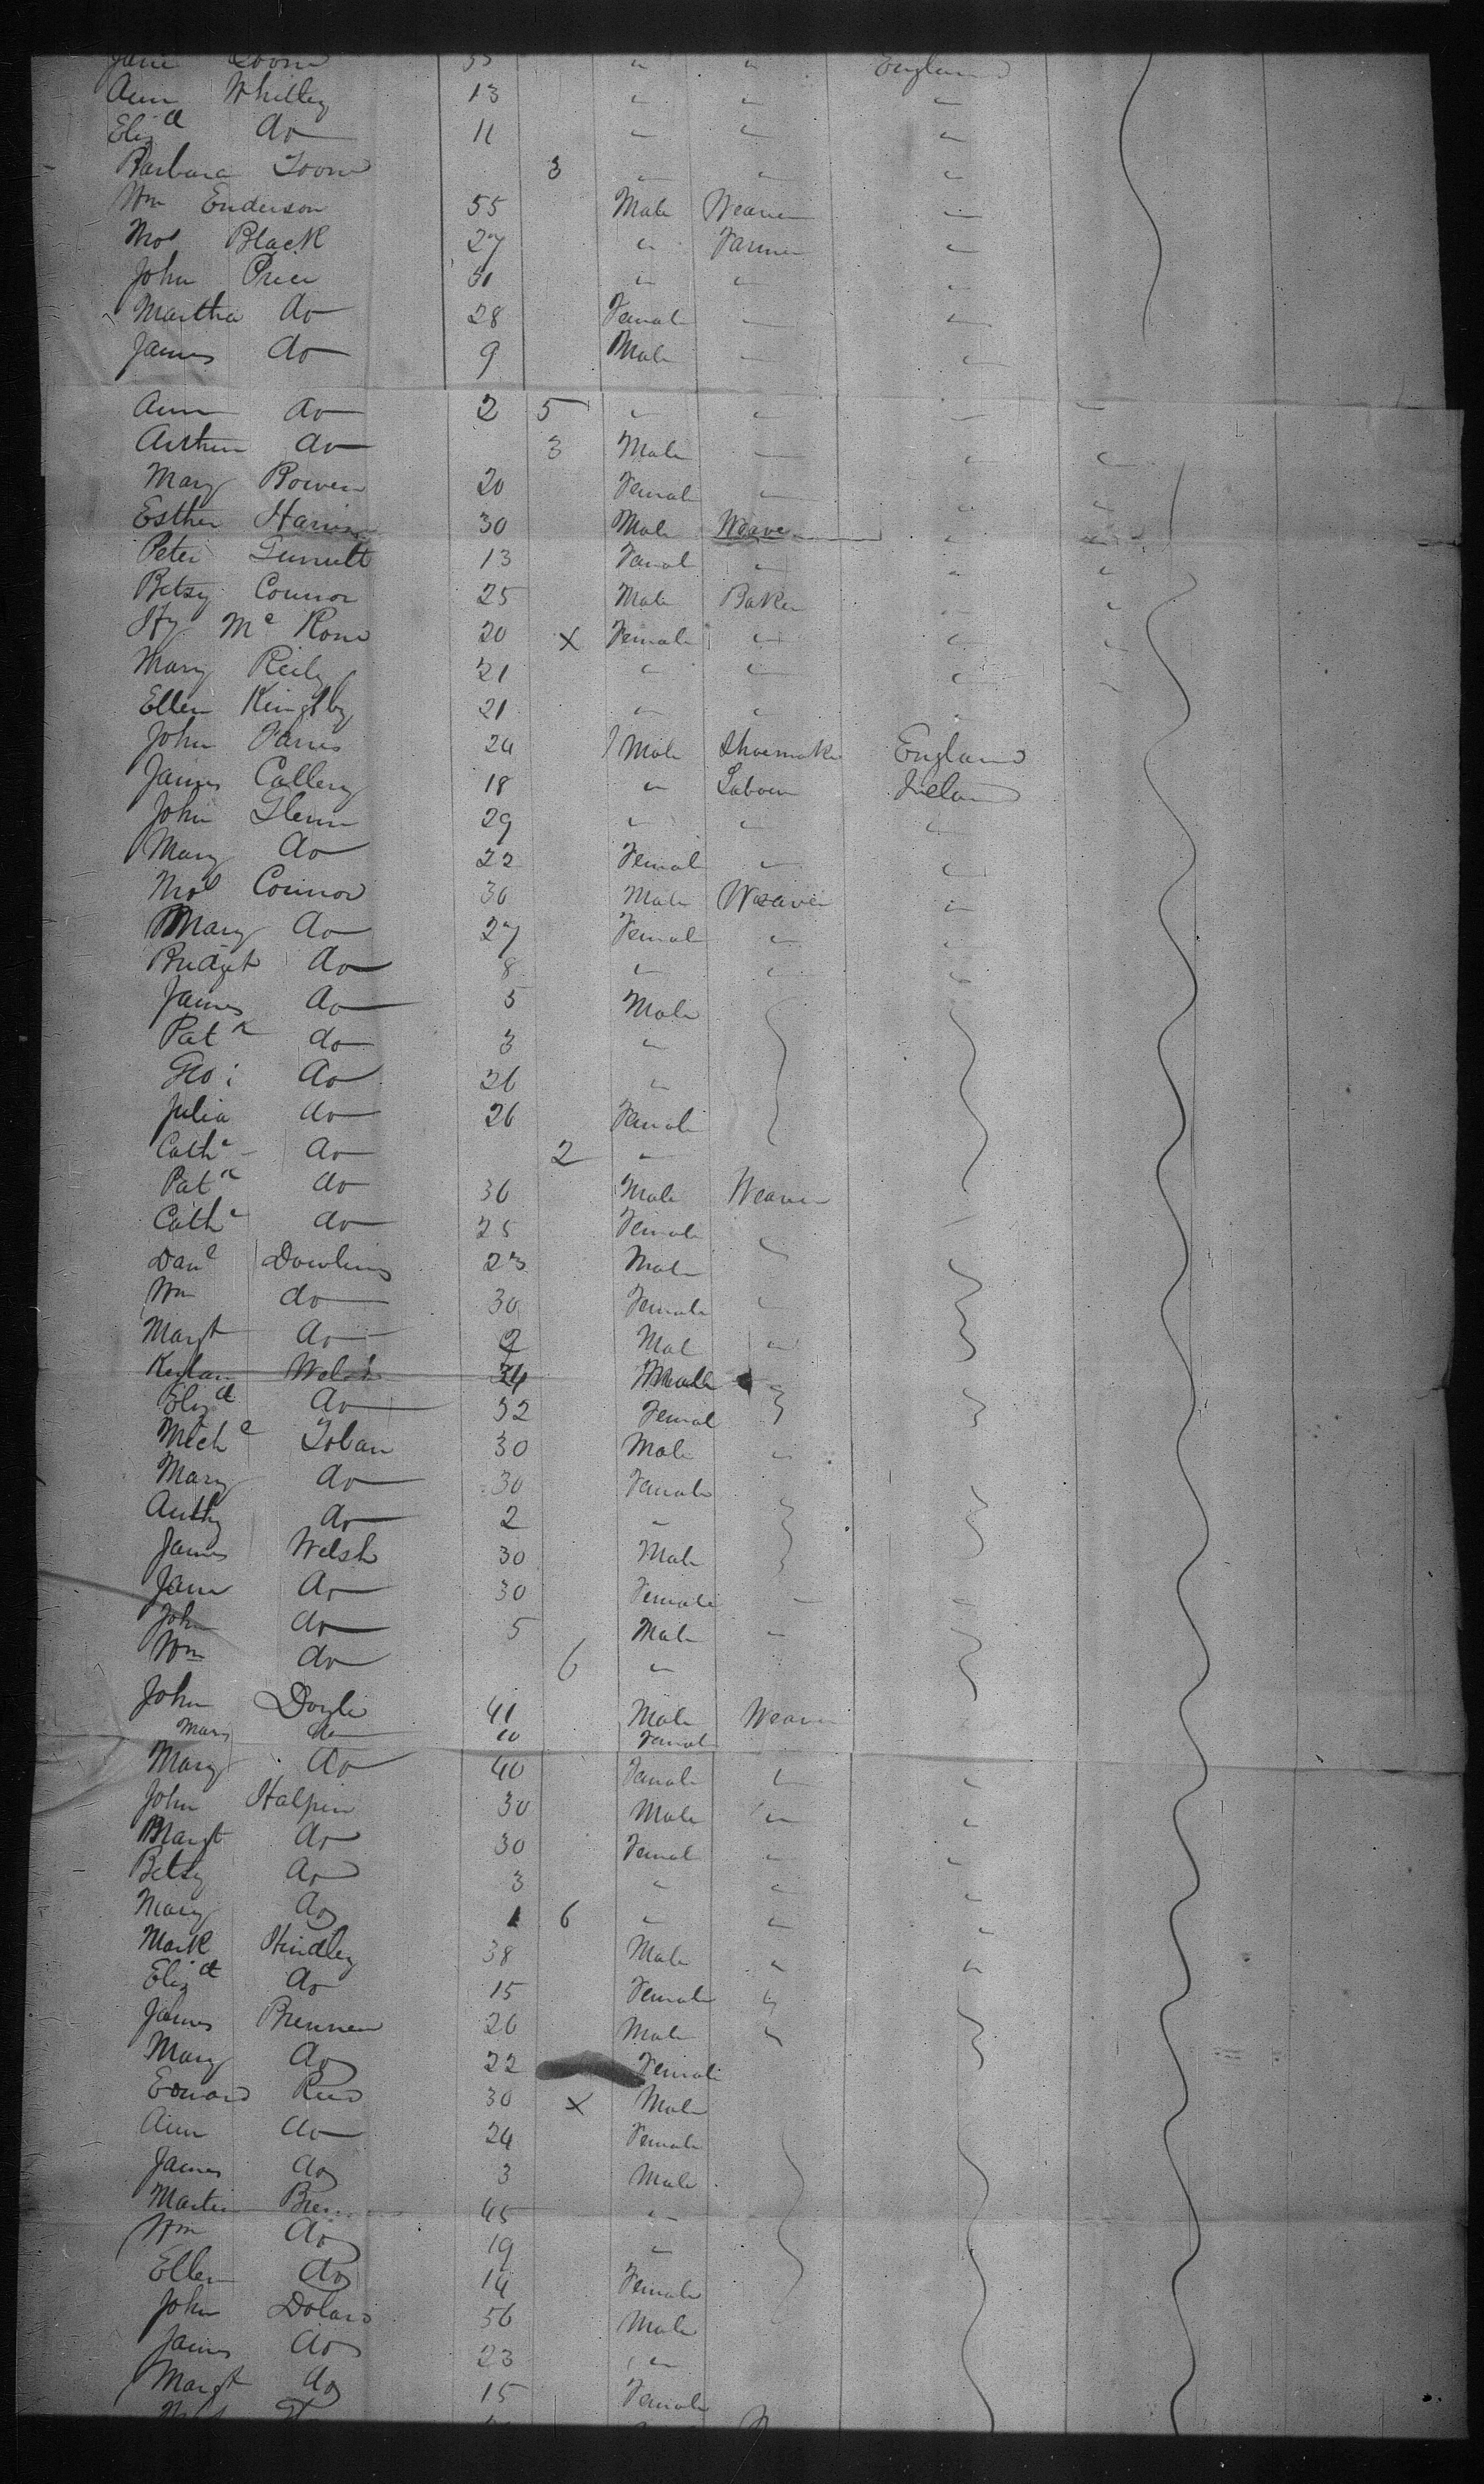 Jane Toone 35 " " England
Ann Whitley 13 " " "
Eliz'th do 11 " " "
Barbara Toone 3 " " "
Wm Enderson 55 Male Weaver "
Thos Black 27 " Farmer "
John Price 31 " " "
Martha do 28 Female " "
James do 9 Male " "
Ann do 2 5 " " "
Arthur do 3 Male " "
Mary Bowen 20 Female " "
Esther 30 Male Weaver "
Peter 13 Female " "
Betsy Connor 25 Male Baker "
Hy Mc 20 x Female " "
Mary Reily 21 " " "
Ellen 21 " " "
John 24 Male Shoemaker England
James Callery 18 " Labour Ireland
John Glenn 29 " " "
Mary do 22 Female " "
Thos Connor 30 Male Weaver "
Mary do 27 Female " "
Bridget do 8 " " "
James do 5 Male
Patk do 3 "
Geo: do 26 "
Julia do 26 Female
Cathe do 2 "
Patk do 36 Male Weaver
Cathe do 25 Female "
Danl Dowling 23 Male
Wm do 30 Female "
Margt do 2 Male "
Welsh 34 Male
Eliz'th do 32 Female
Michl Toban 30 Male "
Mary do 30 Female
Anthy do 2 "
James Welsh 30 Male
Jane do 30 Female " "
John do 5 Male "
Wm do 6 "
John Doyle 41 Male Weaver
Mary do 10 Female
Mary do 40 Female " "
John Halpin 30 Male " "
Margt do 30 Female " "
Betsy do 3 " " "
Mary do 1 6 " " "
Mark Hindley 38 Male " "
Eliz'th do 15 Female "
James Brennen 26 Male "
Mary do 22 Female
Edward Reed 30 x Male
Ann do 24 Female
James do 3 Male
Martin 45 "
Wm do 19 "
Ellen do 14 Female
John Dolan 56 Male
James do 23 "
Margt do 15 Female